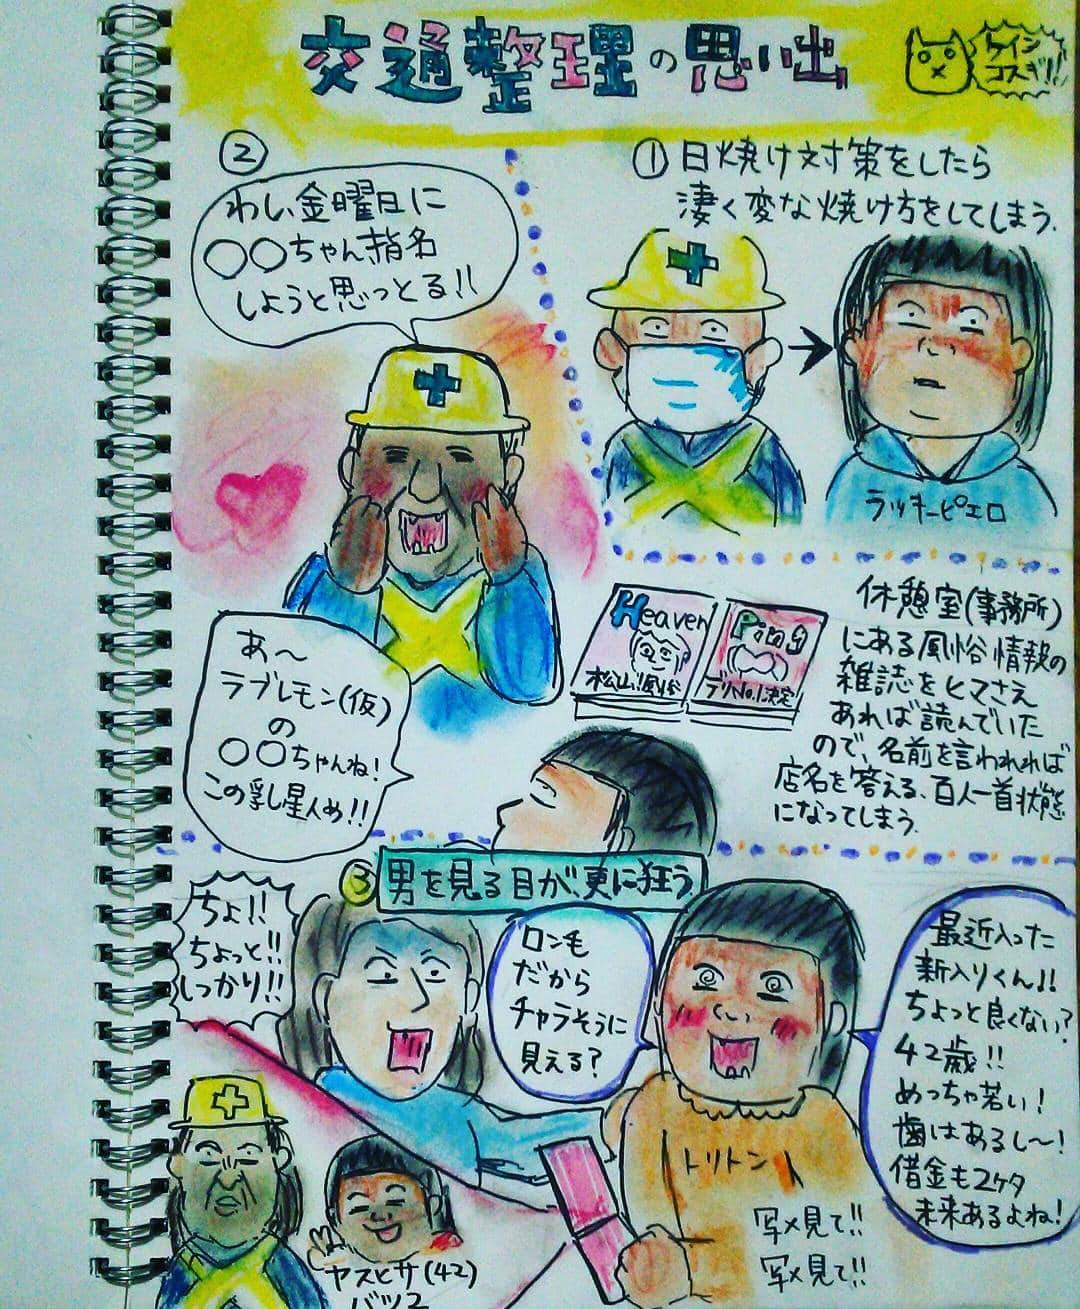 交通整理の思い出
ケイン
コスギ!!
① 日焼け対策をしたら
凄く変な焼け方をしてしまう.
ラッキーピエロ
②
わし金曜日に
○○ちゃん指名
しようと思っとる!!
休憩室(事務所)
にある風俗情報の
雑誌をヒマさえ
あれば読んでいた
ので、名前を言われれば
店名を答える、百人一首状態
になってしまう.
Heaven
松山!風俗
Ping
デリNo.1決定
あ〜
ラブレモン(仮)
の
○○ちゃんね!
この乳し星人め!!
③ 男を見る目が、更に狂う
ちょ!!
ちょっと!!
しっかり!!
ロン毛
だから
チャラそうに
見える?
最近入った
新入りくん!!
ちょっと良くない?
42歳!!
めっちゃ若い!
歯はあるし〜!
借金も2ケタ
未来あるよね!
トリトン
写メ見て!!
写メ見て!!
ヤスヒサ(42)
バツ2